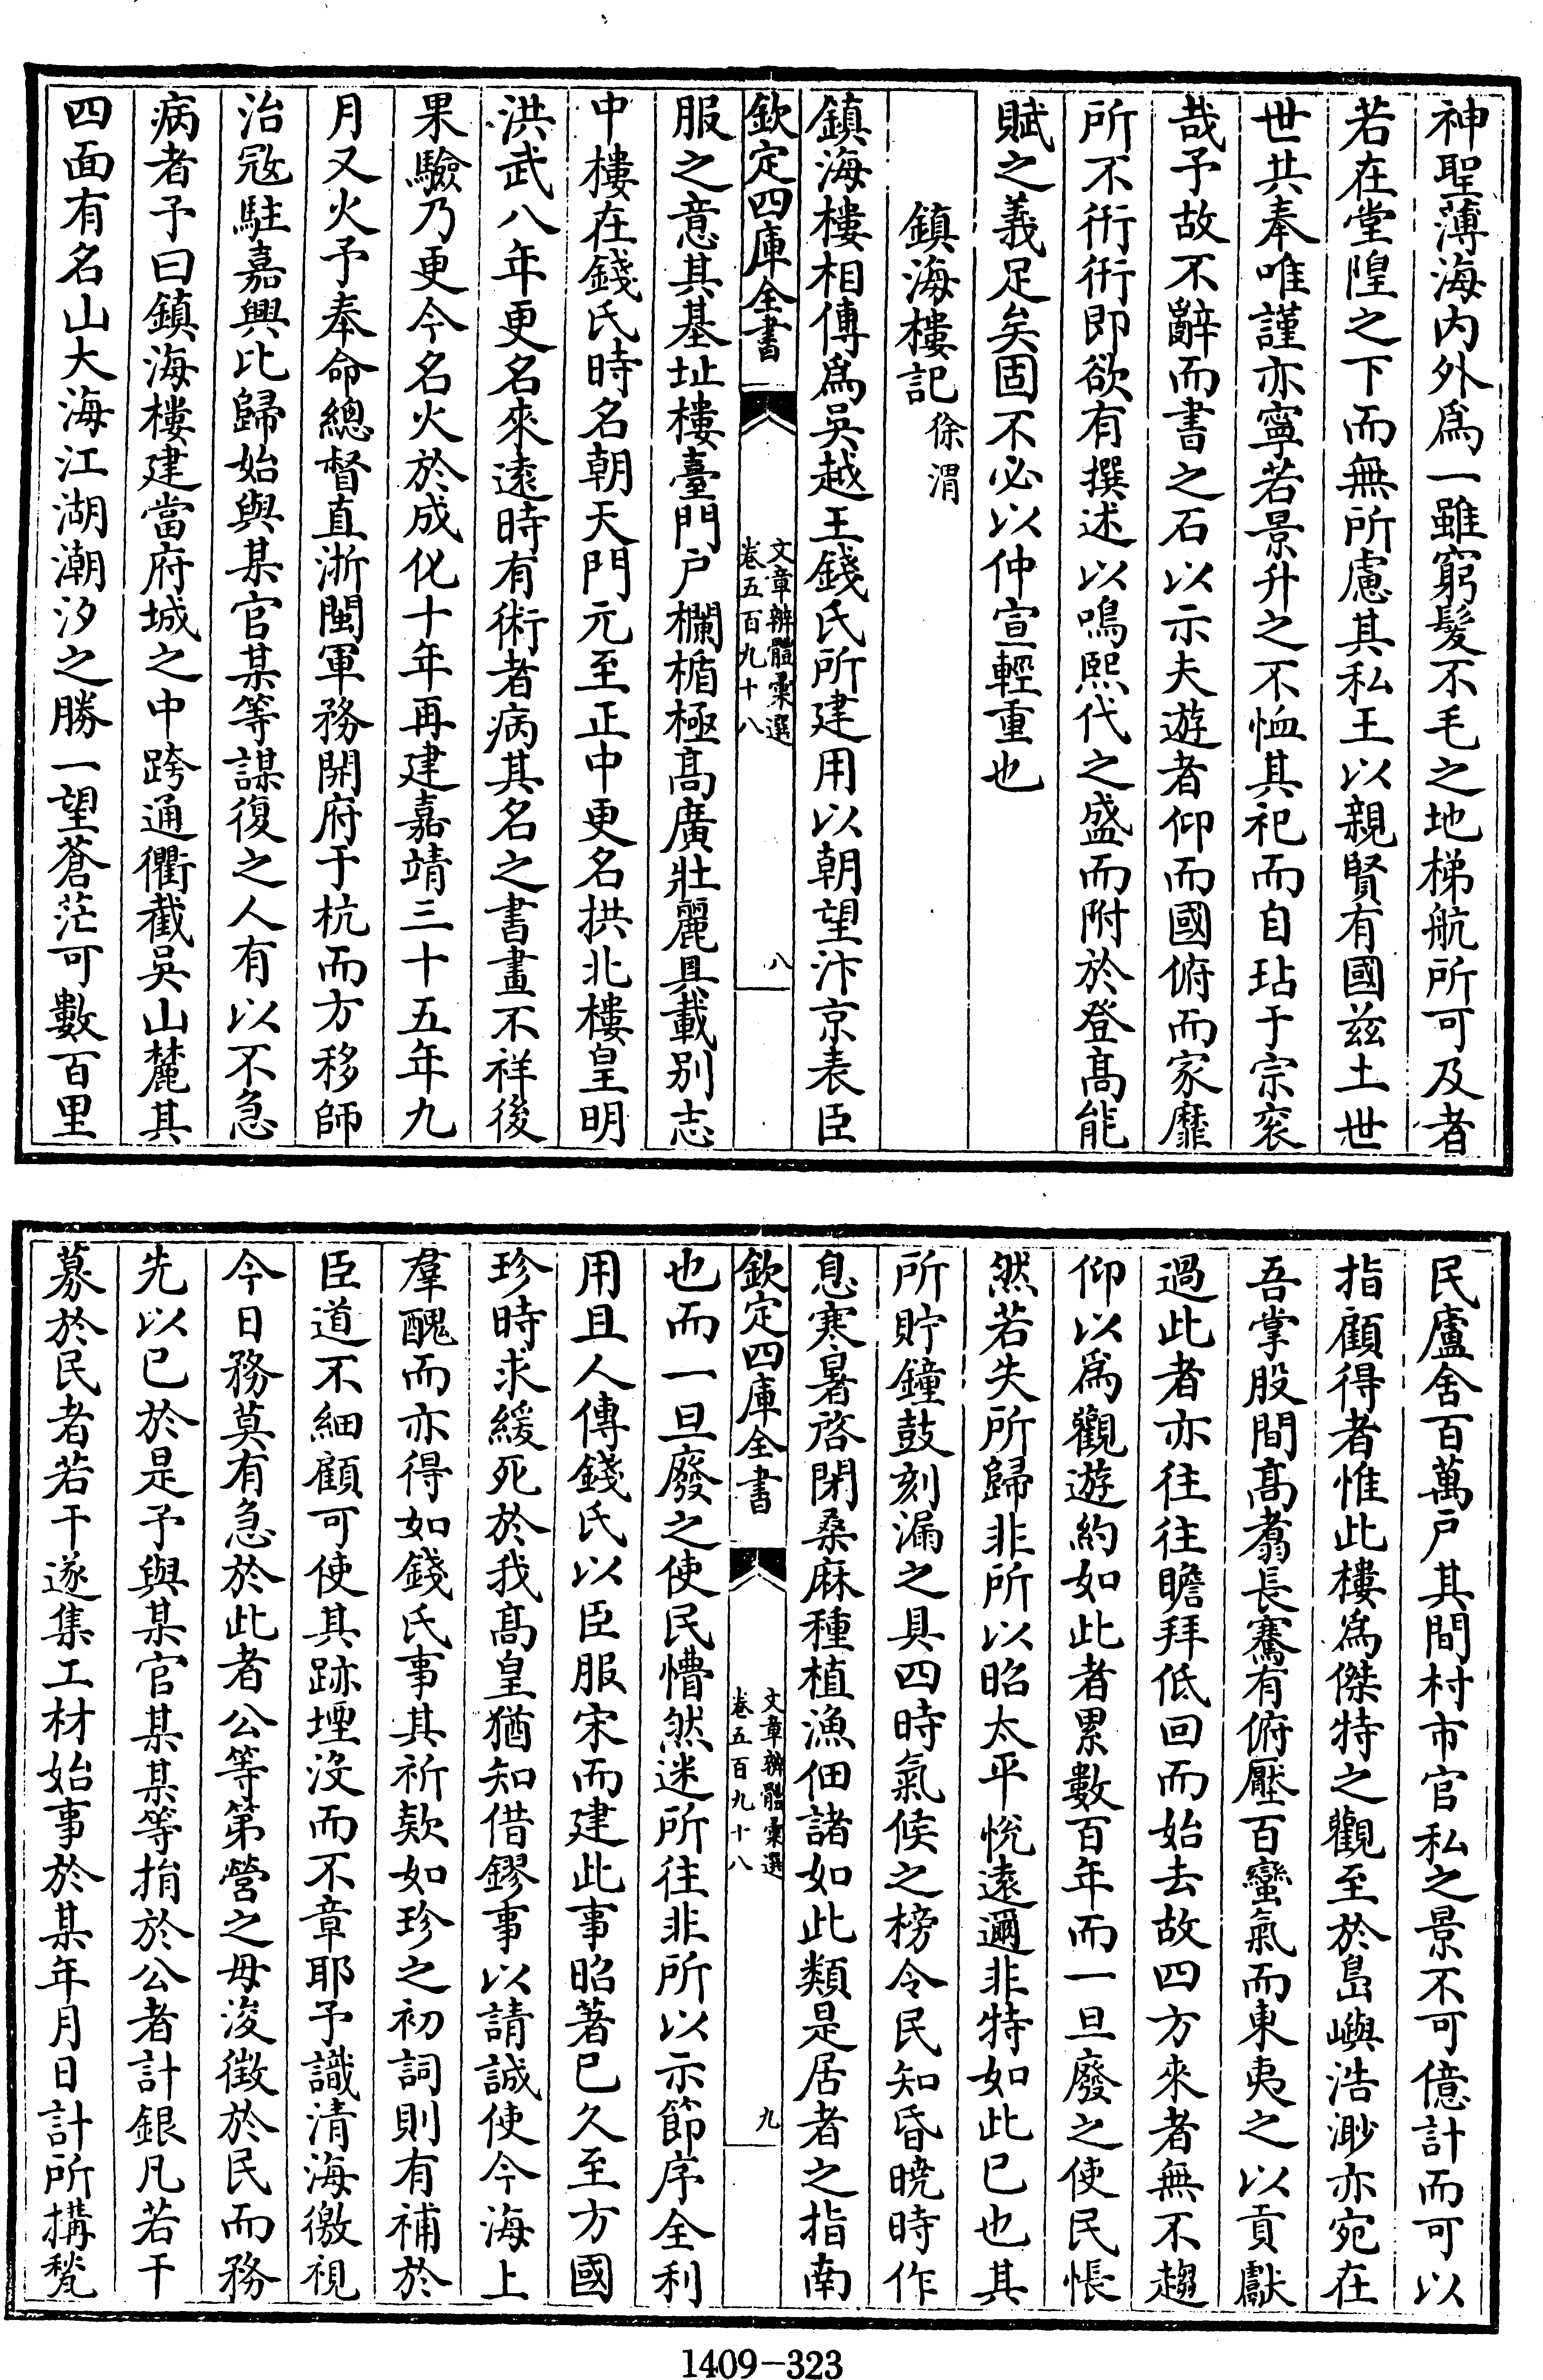 神聖薄海内外爲一雖窮髮不毛之地梯航所可及者
若在堂隍之下而無所慮其私王以親賢有國兹土世
世共奉唯謹亦寧若景升之不恤其祀而自玷于宗衮
哉予故不辭而書之石以示夫遊者仰而國俯而家靡
所不衎衎即欲有撰述以鳴熙代之盛而附於登髙能
賦之義足矣固不必以仲宣輕重也
鎮海樓記 徐渭
鎮海樓相傳爲吳越王錢氏所建用以朝望汴京表臣
欽定四庫全書
文章辨體彚選
卷五百九十八
八
服之意其基址樓臺門户欄楯極髙廣壯麗具載别志
中樓在錢氏時名朝天門元至正中更名拱北樓皇明
洪武八年更名來遠時有術者病其名之書畫不祥後
果驗乃更今名火於成化十年再建嘉靖三十五年九
月又火予奉命總督直浙閩軍務開府于杭而方移師
治冦駐嘉興比歸始與某官某等謀復之人有以不急
病者予曰鎮海樓建當府城之中跨通衢截吳山麓其
四面有名山大海江湖潮汐之勝一望蒼茫可數百里
民廬舍百萬户其間村市官私之景不可億計而可以
指顧得者惟此樓爲傑特之觀至於島嶼浩渺亦宛在
吾掌股間髙翥長騫有俯壓百蠻氣而東夷之以貢獻
過此者亦往往瞻拜低回而始去故四方來者無不趨
仰以爲觀遊約如此者累數百年而一旦廢之使民悵
然若失所歸非所以昭太平悅遠邇非特如此已也其
所貯鐘鼓刻漏之具四時氣候之榜令民知昏曉時作
息寒暑啓閉桑麻種植漁佃諸如此類是居者之指南
欽定四庫全書
文章辨體彚選
卷五百九十八
九
也而一旦廢之使民懵然迷所往非所以示節序全利
用且人傳錢氏以臣服宋而建此事昭著已久至方國
珍時求緩死於我髙皇猶知借鏐事以請誠使今海上
羣醜而亦得如錢氏事其祈欵如珍之初詞則有補於
臣道不細顧可使其跡堙沒而不章耶予識清海徼視
今日務莫有急於此者公等第營之毋浚徵於民而務
先以已於是予與某官某某等捐於公者計銀凡若干
募於民者若干遂集工材始事於某年月日計所搆甃
1409-323